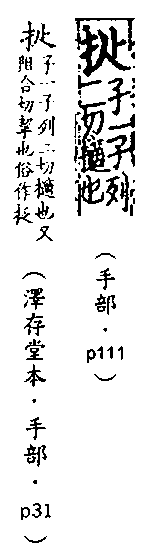 子一子列
二切也
（手部．p111）
子一子列二切也又
阻合切擊也俗作
（澤存堂本．手部．p31）